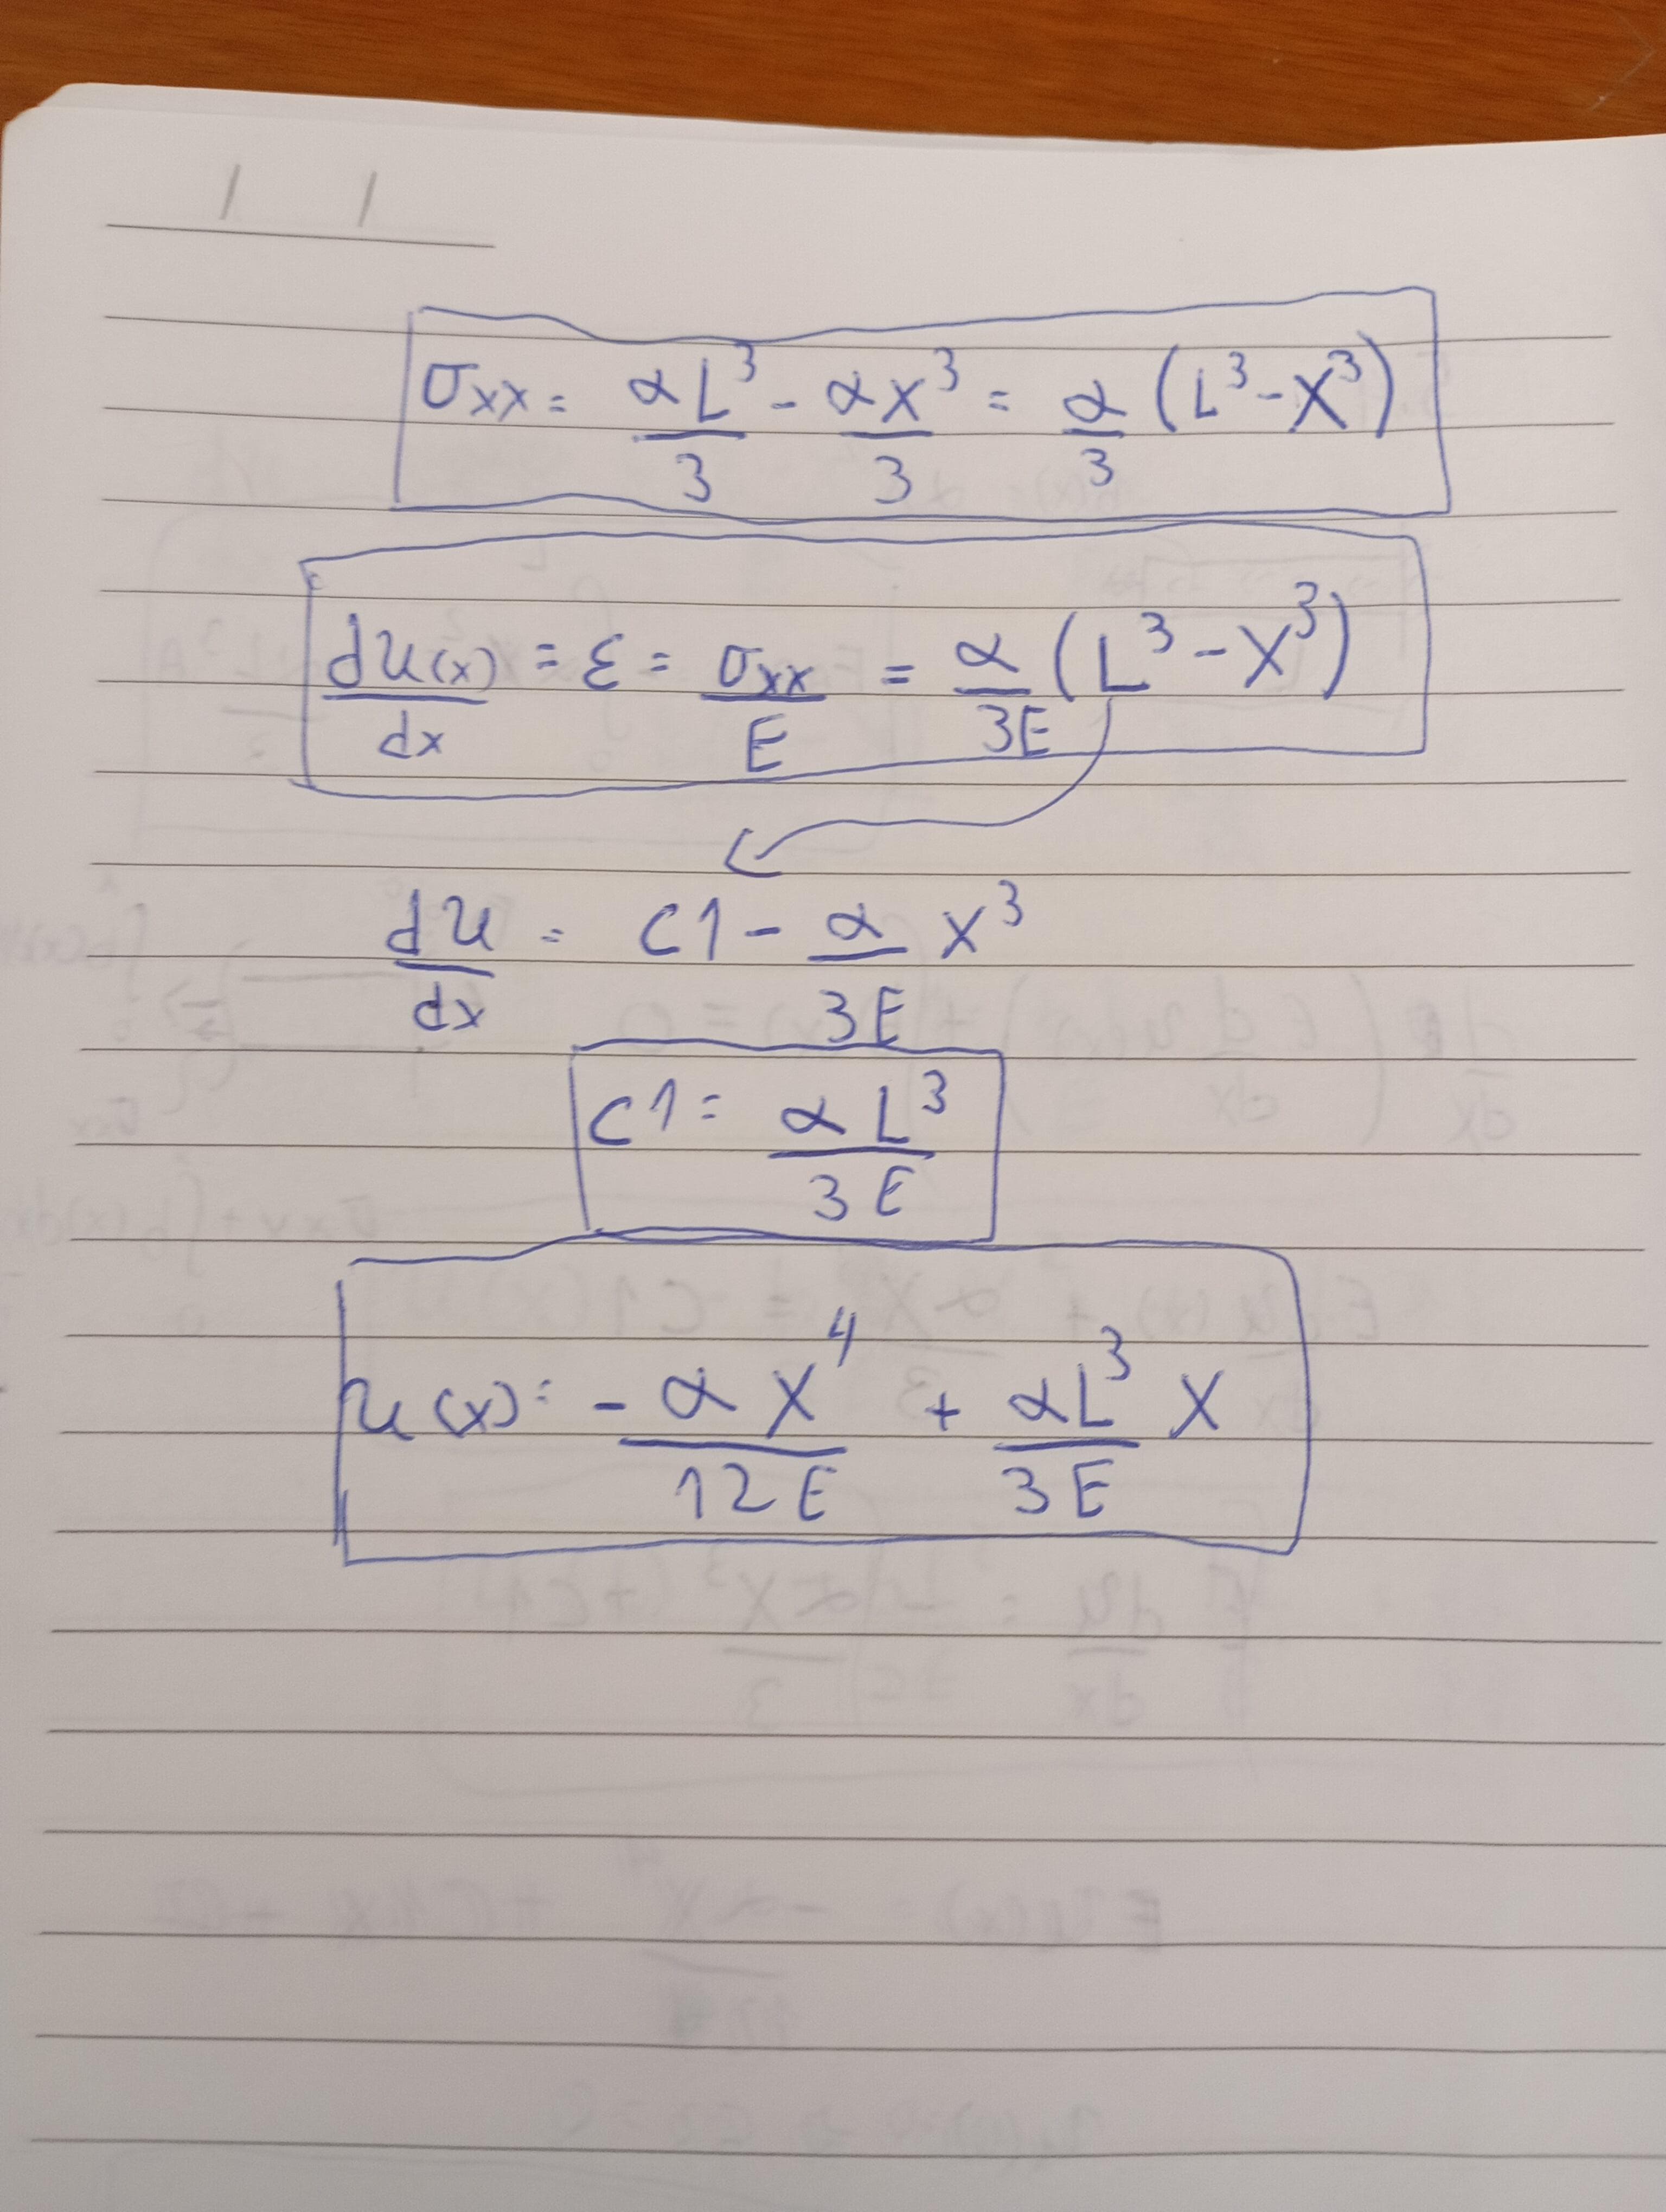 / /
σxx = αL³/3 - αx³/3 = α/3 (L³-X³)
du(x)/dx = ε = σxx/E = α/3E (L³-X³)
du/dx = C1 - α/3E X³
C1 = αL³/3E
u(x) = - αX⁴/12E + αL³/3E X